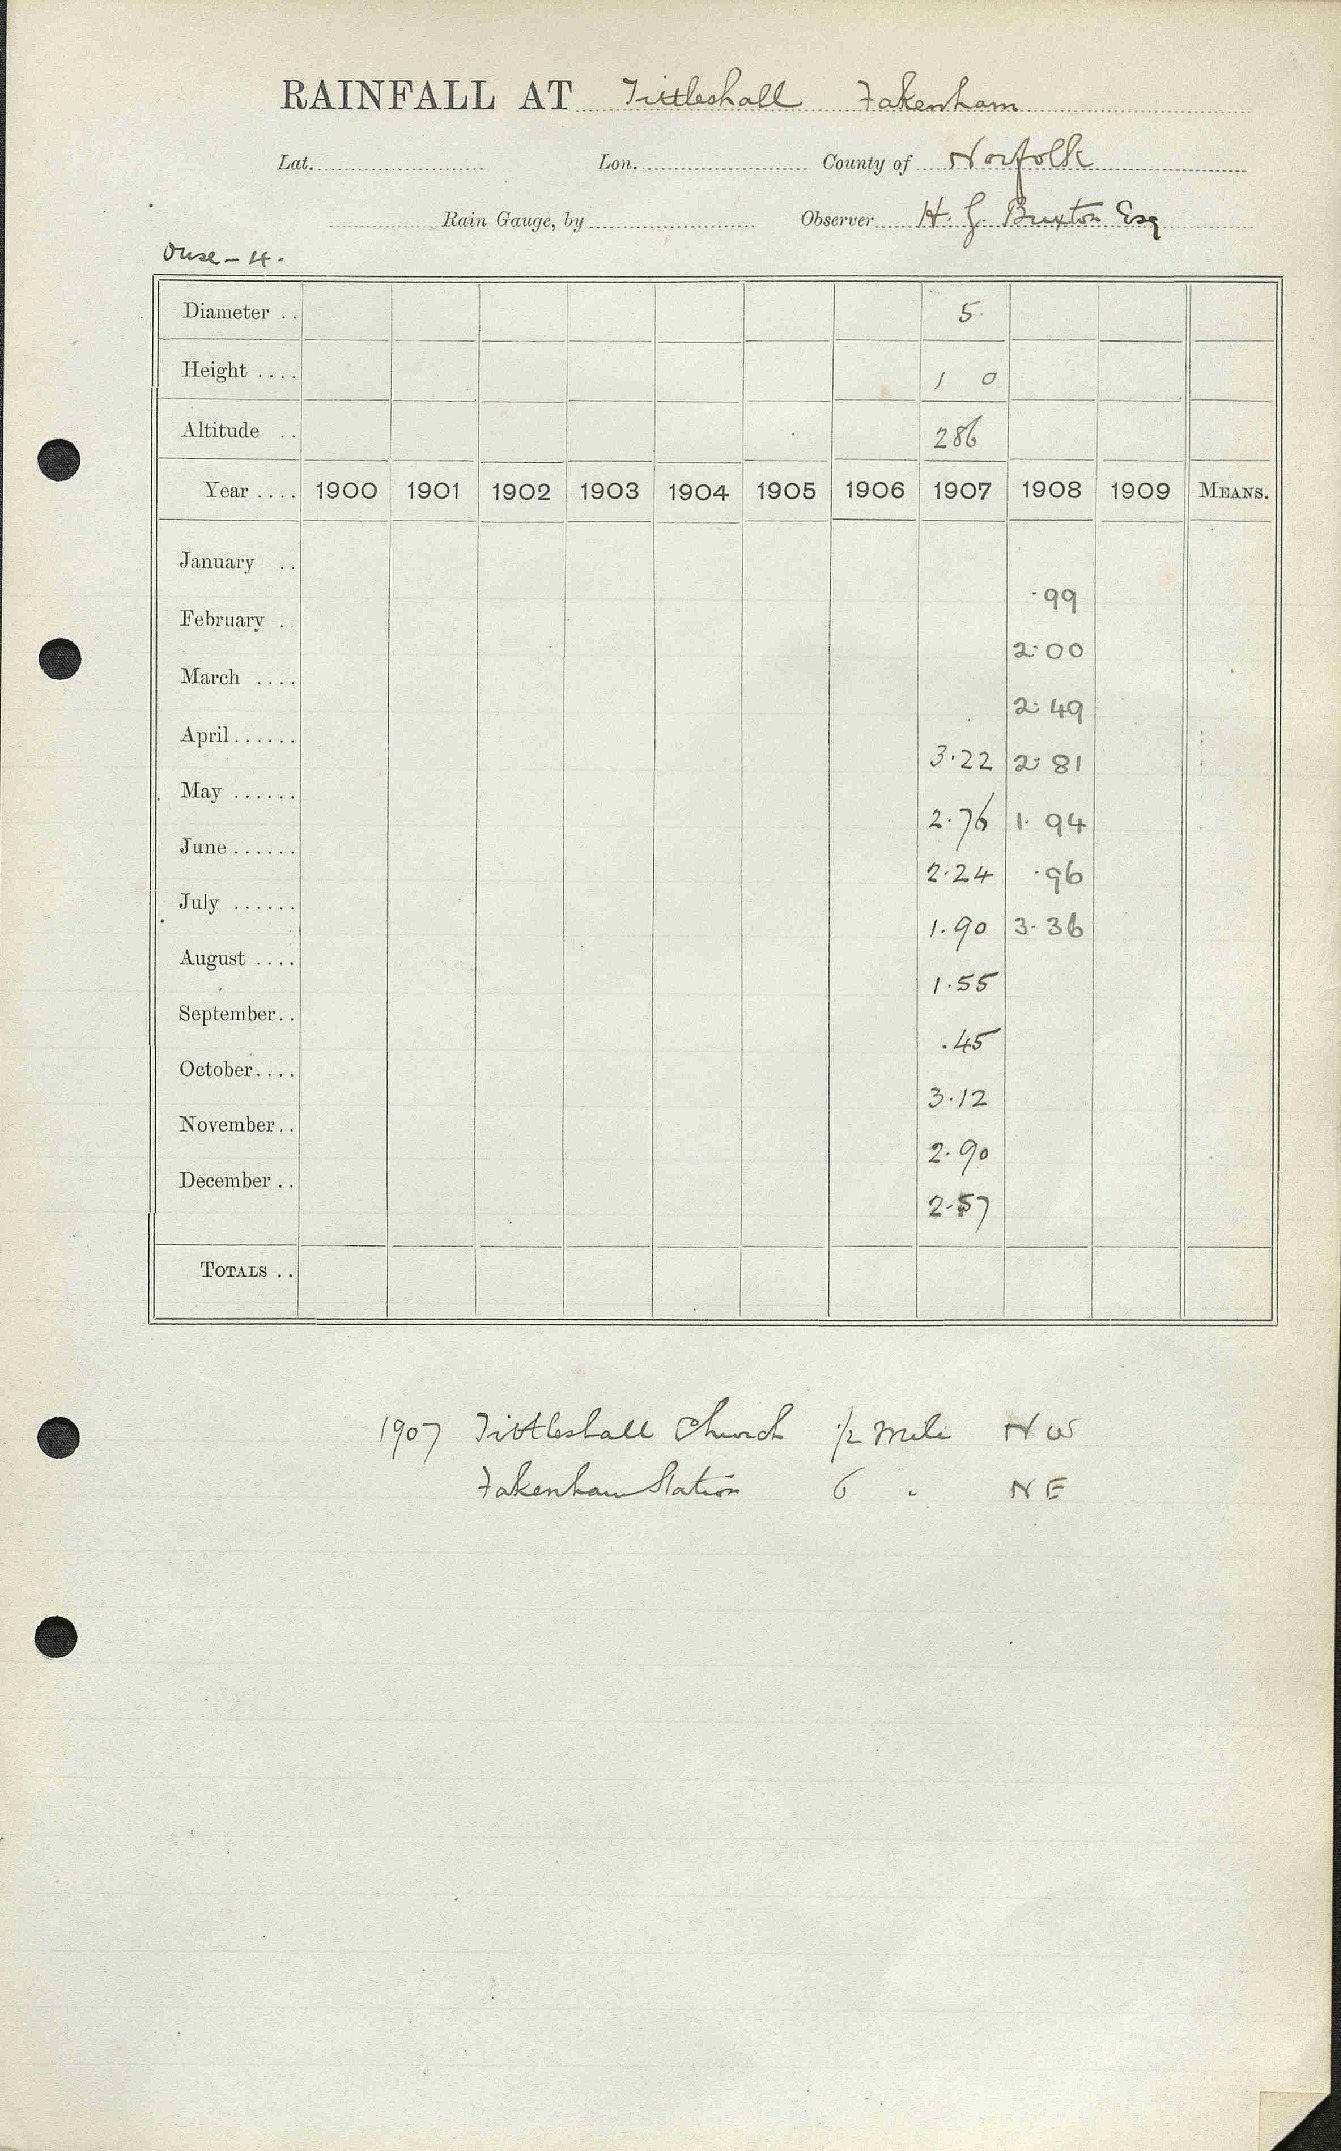 RAINFALL AT Tittleshall Fakenham
Lat. Lon. County of Norfolk
Rain Gauge, by Observer H. G. Buxton Esq
Ouse - 4.
Diameter .. 5
Height .... 1 0
Altitude .. 286
Year .... 1900 1901 1902 1903 1904 1905 1906 1907 1908 1909 MEANS.
January ..
·99
February .
2·00
March ....
2·49
April......
3·22 2·81
May ......
2·76 1·94
June ......
2·24 ·96
July ......
1·90 3·36
August ....
1·55
September..
·45
October....
3·12
November..
2·90
December ..
2·57
TOTALS ..
1907 Tittleshall Church 1/2 mile NW
Fakenham Station 6 " NE